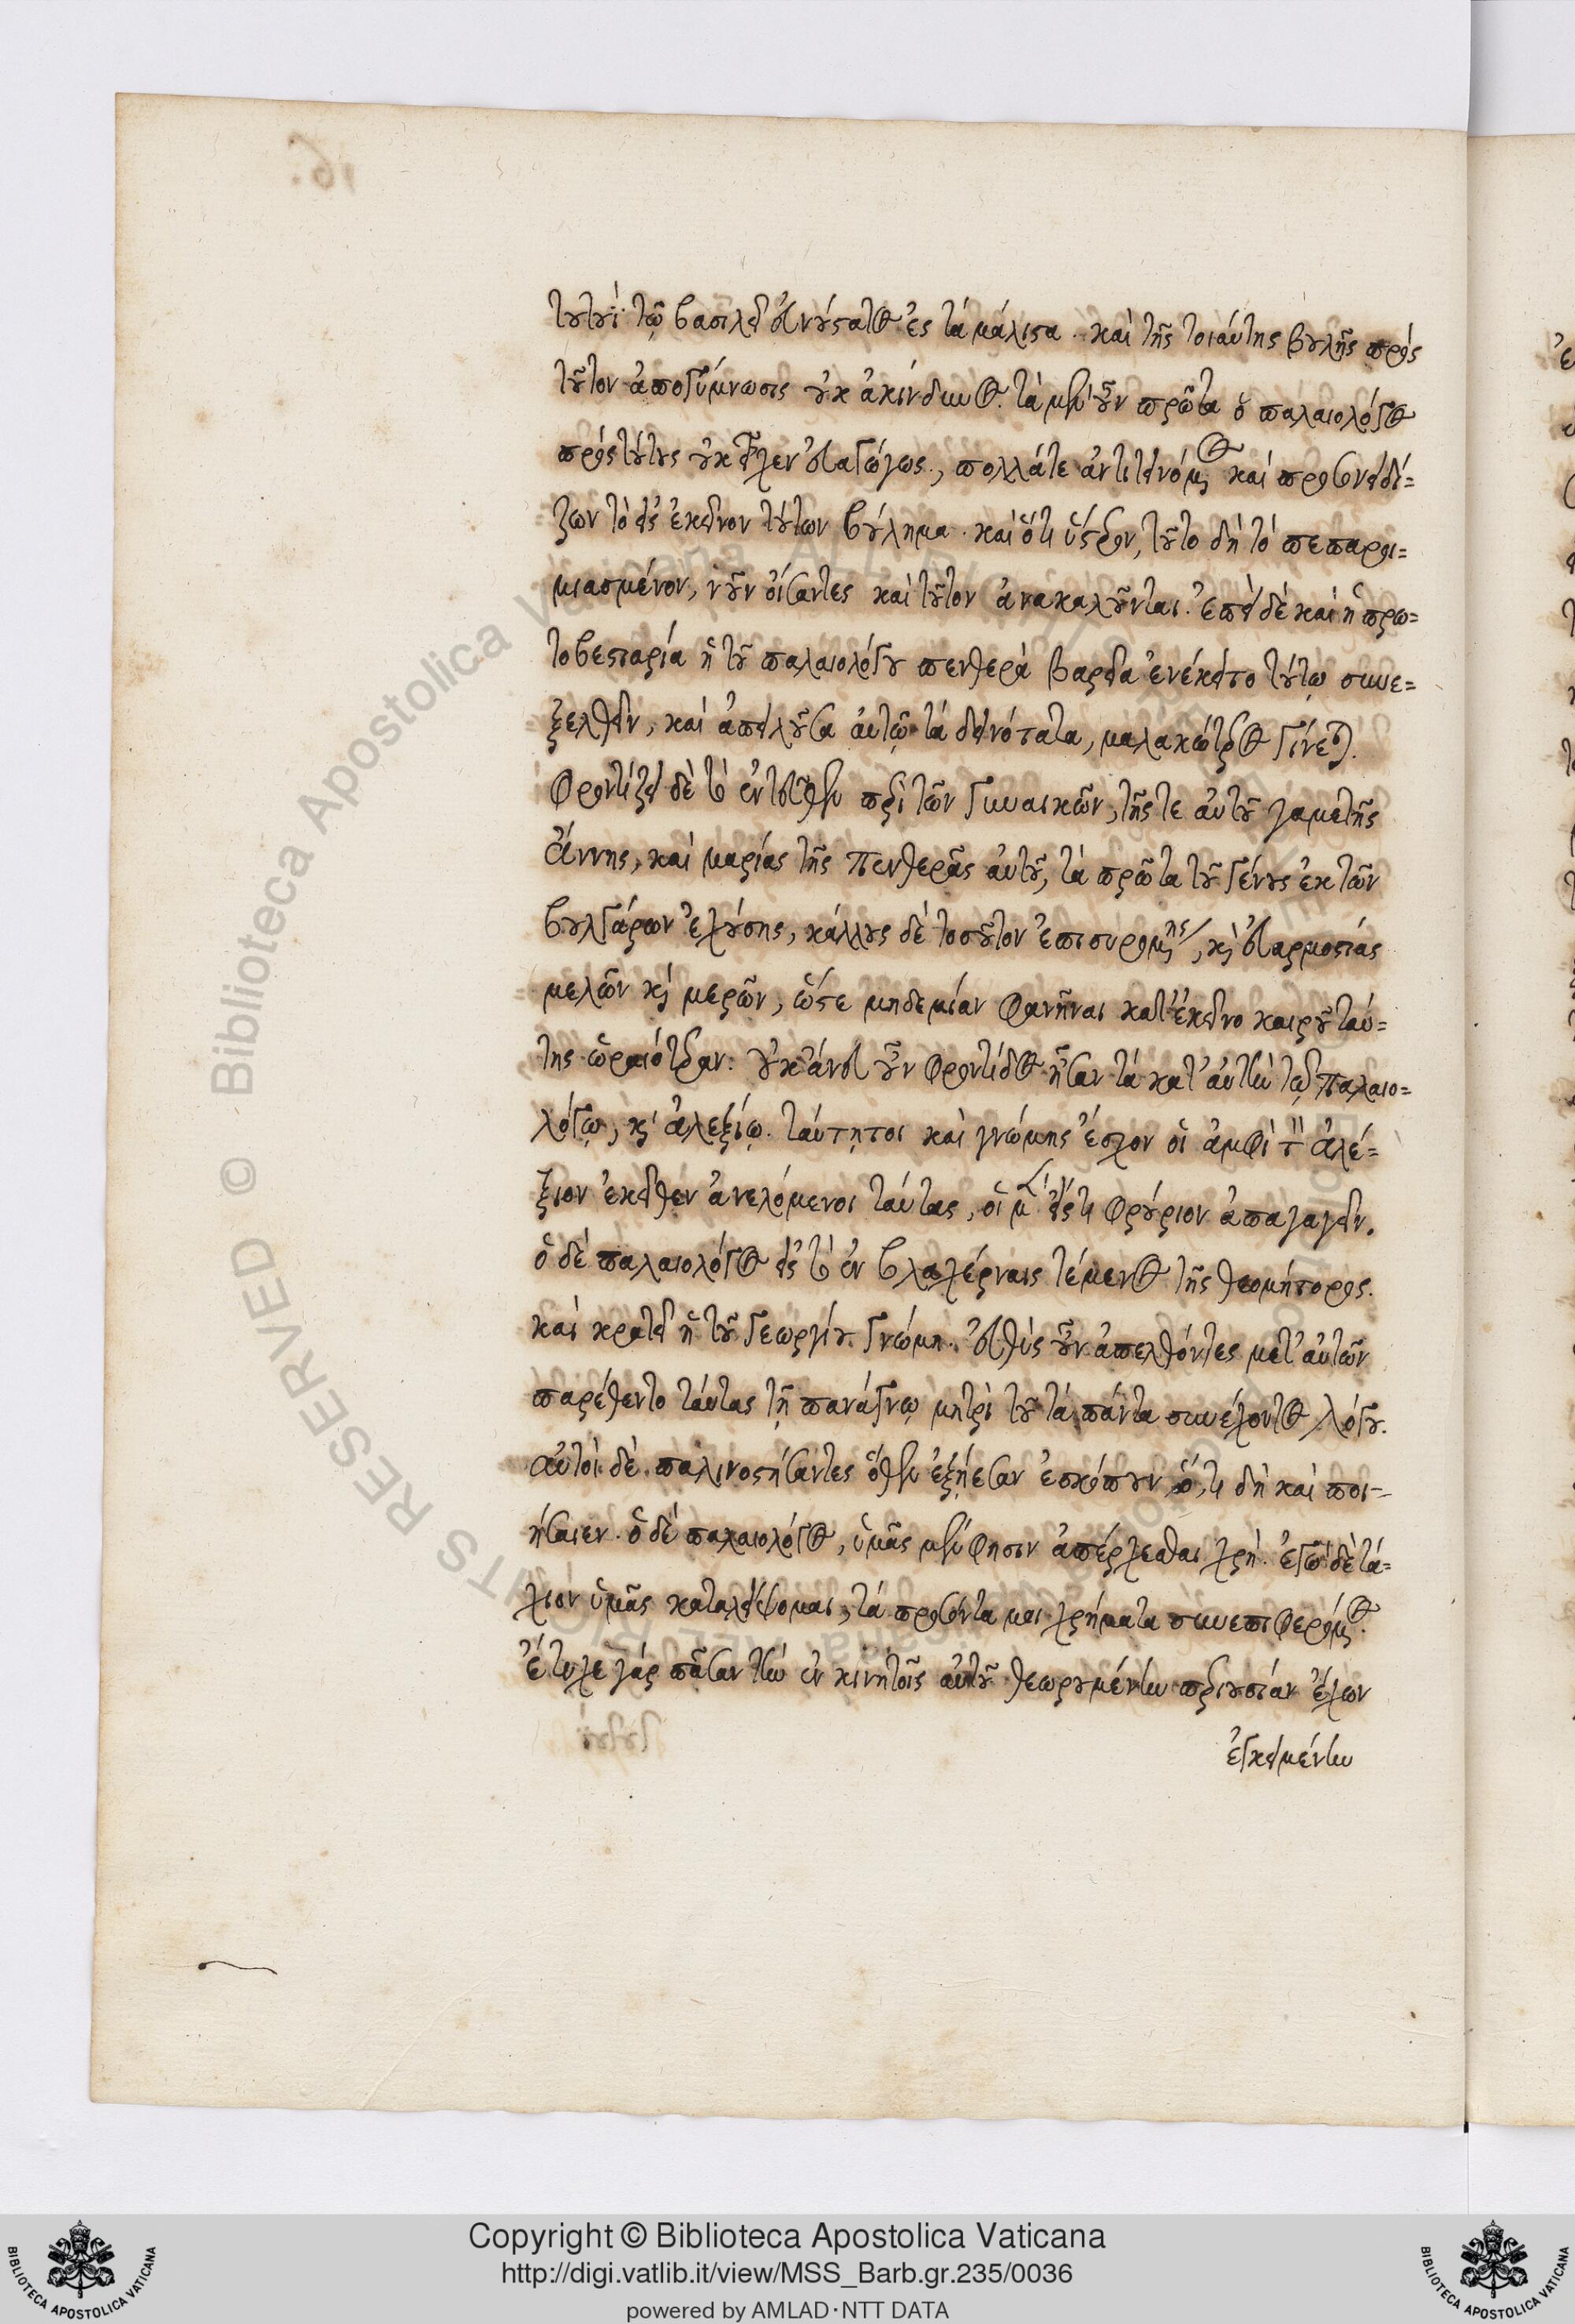 τουτωῒ τῷ βασιλεῖ εὐνούστατος ἐς τὰ μάλιστα. καὶ τῆς τοιαύτης βουλῆς πρὸς
τοῦτον ἀπογύμνωσις οὐκ ἀκίνδυνος. τὰ μὲν οὖν πρῶτα ὁ παλαιολόγος
πρὸς τούτους οὐκ εἶχεν εὐαγώγως, πολλά τε ἀντιτεινόμενος καὶ προσονειδί=
ζων τὸ εἰς ἐκεῖνον τούτων βούλημα. καὶ ὅτι ὕστερον, τοῦτο δὴ τὸ πεπαροι=
μιασμένον, νοῦν οἴσαντες καὶ τοῦτον ἀνακαλοῦνται. ἐπεὶ δὲ καὶ ἡ πρω=
τοβεσταρία ἡ τοῦ παλαιολόγου πενθερὰ βαρεῖα ἐνέκειτο τούτῳ συνε=
ξελθεῖν, καὶ ἀπειλοῦσα αὐτῷ τὰ δεινότατα, μαλακώτερος γίνεται.
Φροντίζει δὲ τὸ ἐντεῦθεν περὶ τῶν γυναικῶν, τῆς τε αὐτοῦ γαμετῆς
ἄννης, καὶ μαρίας τῆς πενθερᾶς αὐτοῦ, τὰ πρῶτα τοῦ γένους ἐκ τῶν
βουλγάρων ἐχούσης, κάλλους δὲ τοσοῦτον ἐπισυρομένης, καὶ εὐαρμοστίας
μελῶν καὶ μερῶν, ὥστε μηδεμίαν φανῆναι κατ' ἐκεῖνο καιροῦ ταύ=
της ὡραιότεραν. οὐκ ἄνευ οὖν φροντίδος ἦσαν τὰ κατ' αὐτὴν τῷ παλαιο=
λόγῳ, καὶ ἀλεξίῳ. ταύτῃτοι καὶ γνώμης ἔσχον οἱ ἀμφὶ τὸν ἀλέ=
ξιον ἐκεῖθεν ἀνελόμενοι ταύτας, οἱ μὲν εἴς τι φρούριον ἀπαγαγεῖν.
ὁ δὲ παλαιολόγος εἰς τὸ ἐν βλαχέρναις τέμενος τῆς θεομήτορος.
καὶ κρατεῖ ἡ τοῦ γεωργίου γνώμη. εὐθὺς οὖν ἀπελθόντες μετ' αὐτῶν
παρέθεντο ταύτας τῇ πανάγνῳ μητρὶ τοῦ τὰ πάντα συνέχοντος λόγου.
αὐτοὶ δὲ παλινοστήσαντες ὅθεν ἐξῄεσαν ἐσκόπουν ὅ,τι δὴ καὶ ποι=
ήσαιεν. ὁ δὲ παλαιολόγος, ὑμᾶς μὲν φησὶν ἀπέρχεσθαι χρή. ἐγὼ δὲ τά=
χιον ὑμᾶς καταλείψομαι, τὰ προσόντα μοι χρήματα συνεπιφερόμενος.
ἔτυχε γὰρ πᾶσαν τὴν ἐν κινητοῖς αὐτοῦ θεωρουμένην περιουσίαν ἔχων
ἐγκειμένην